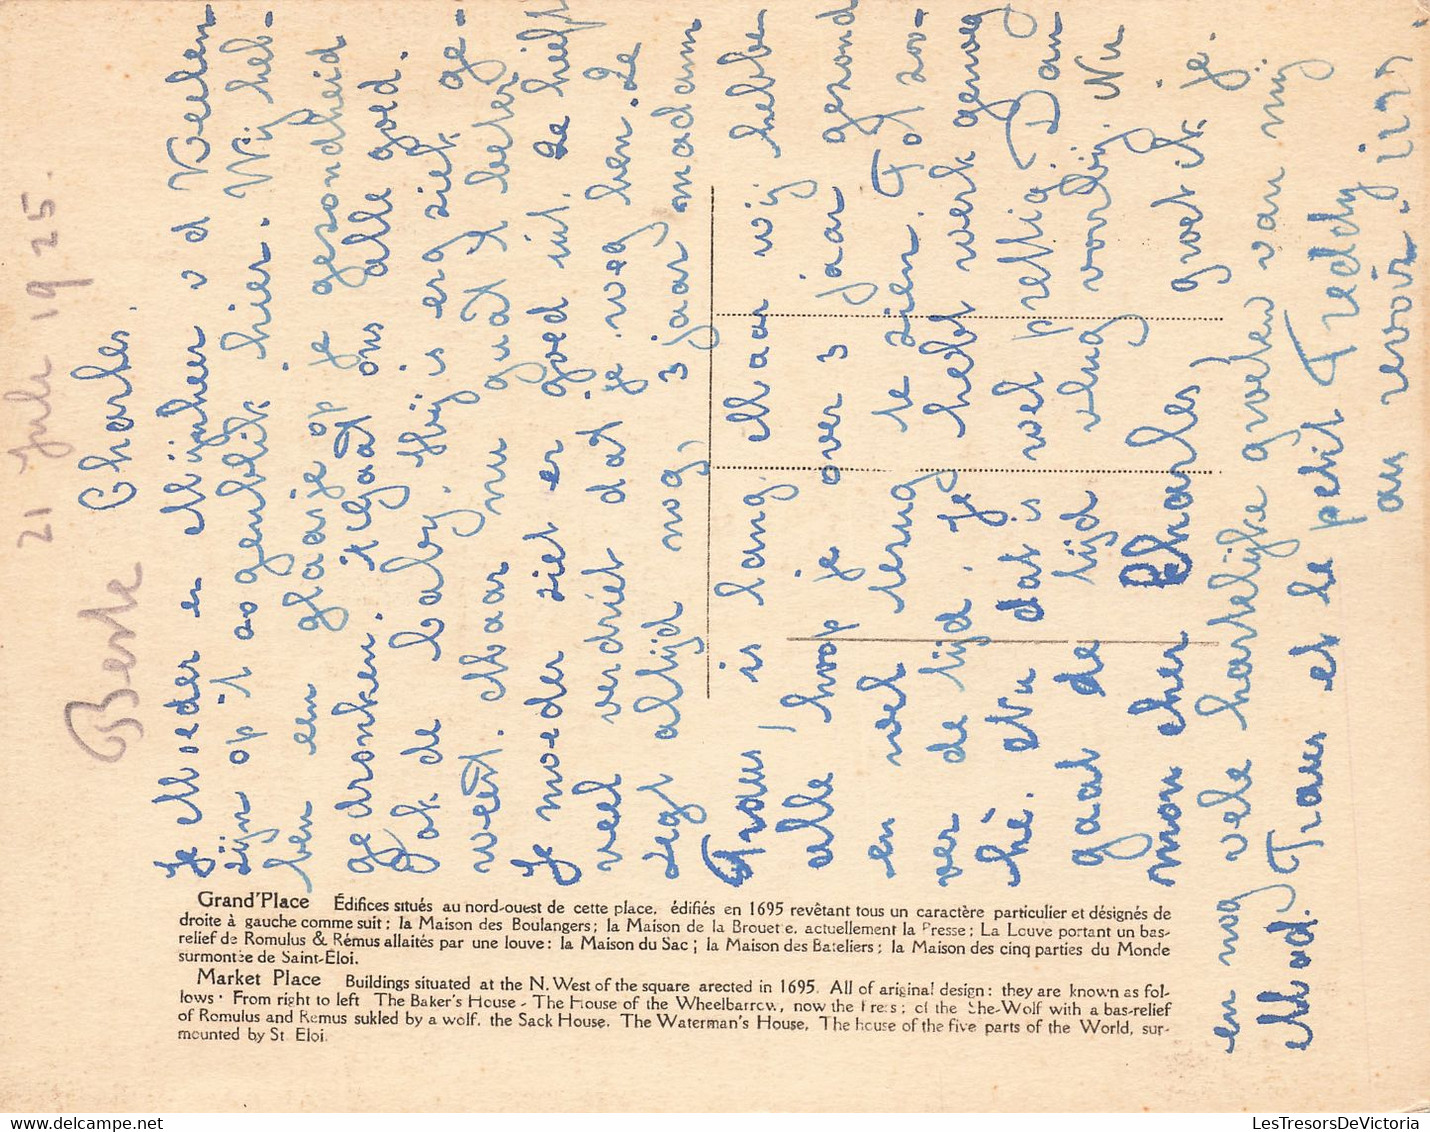 21 Juli 1925.
Beste Charles.
Je Moeder en Mijnheer v d Veelen
zijn op 't oogenblik hier. Wij heb-
ben een glaasje op je gezondheid
gedronken. 't Gaat ons alle goed.
Ook de baby. Hij is erg ziek ge-
weest. Maar nu gaat 't beter
Je moeder ziet er goed uit. Ze heeft
veel verdriet dat je weg ben. Ze
zegt altijd nog, 3 jaar madam
Fraus, is lang. Maar wij hebbe
alle hoop je over 3 jaar gezond
en wel terug te zien. Tot zoo-
ver de tijd. Je hebt werk genoeg
hé. Nu dat is wel prettig. Dan
gaat de tijd vlug voorbij. Nu
mon cher Charles, groet ik je.
en nog vele hartelijke groeten van mij
Mad. Fraus et le petit Freddy
au revoir.
Grand'Place Édifices situés au nord-ouest de cette place, édifiés en 1695 revêtant tous un caractère particulier et désignés de
droite à gauche comme suit : la Maison des Boulangers ; la Maison de la Brouette, actuellement la Presse ; La Louve portant un bas-
relief de Romulus & Rémus allaités par une louve : la Maison du Sac ; la Maison des Bateliers ; la Maison des cinq parties du Monde
surmontée de Saint-Éloi.
Market Place Buildings situated at the N. West of the square arected in 1695. All of ariginal design : they are known as fol-
lows : From right to left The Baker's House - The House of the Wheelbarrow, now the Press ; of the She-Wolf with a bas-relief
of Romulus and Remus sukled by a wolf, the Sack House. The Waterman's House, The house of the five parts of the World, sur-
mounted by St Eloi.
LesTresorsDeVictoria